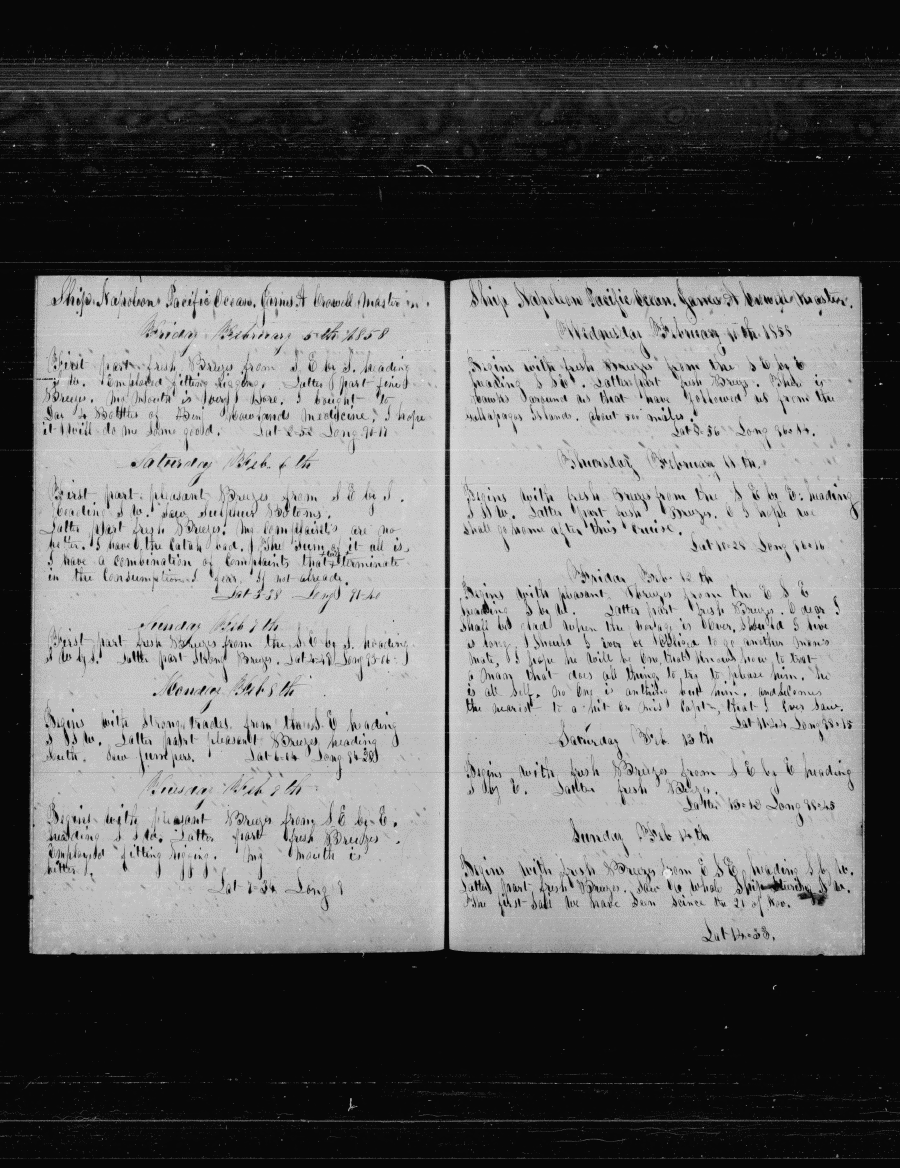 Ship Napoleon Pacific Ocean. James A Crowell Master
Friday February 5th 1858
First part fresh Breezes from S. E by S. heading
S W. Employed fitting rigging. Latter part fine
Breezes. My Mouth is Very Sore. I bought to
day 4 Bottles of Medicine, I hope
it will do me some good. Lat 2-52 Long 90-11
Saturday Feb. 6th
First part pleasant Breezes from S E by S.
heading S W. Saw Sulphur Bottoms.
Latter part fresh Breezes. My complaints are no
better. I have the Catah bad. The Sum of it all is
I have a combination of Complaints that will terminate
in the Consumption I fear. If not already.
Lat 3-28 Long 91-40
Sunday Feb 7th
First part fresh Breezes from the S. E by S. heading
S W by S. Latter part Strong Breezes. Lat 4-48 Long 93-06
Monday Feb 8th
Begins with Strong trades from the S. E heading
S S W. Latter part pleasant Breezes heading
South. Saw jumpers. Lat 6-04 Long 94-28
Tuesday Feb 9th
Begins with pleasant Breezes from S. E by E.
heading S S W. Latter part fresh Breezes.
Employed fitting rigging. My mouth is
better.
Lat 7-34 Long
Ship Napoleon Pacific Ocean. James A Crowell Master.
Wednesday February 10th 1858
Begins with fresh Breezes from the S E by E
heading S S W. Latter part fresh Breezes. There is
hawks around us that have followed us from the
Gallapagos Islands. about 800 miles.
Lat 8-56 Long 96-14.
Thursday February 11th.
Begins with fresh Breezes from the S E by E. heading
S S W. Latter part fresh Breezes. O I hope we
shall go home after this cruise.
Lat 10-24 Long 96-16
Friday Feb 12th
Begins with pleasant Breezes from the E S E
heading S by W. Latter part fresh Breezes. O dear I
shall be glad when the Voyage is Over, Should I live
as long. I Should I ever be Obliged to go another Man's
Mate, I hope he will be One, that knows how to treat
a Man that does all things to try to please him. He
is all Self. No One is anything but him. and becomes
the nearest to a as this Captn, that I Ever Saw.
Lat 11-54 Long 98-15
Saturday Feb 13th
Begins with fresh Breezes from S E by E heading
S by E. Latter fresh Breezes.
Latter 13-18 Long 98-43
Sunday Feb 14th
Begins with fresh Breezes from E S E, heading S by W.
Latter part fresh Breezes. Saw a whale Ship Steering S W.
The first Sail we have Seen Scince the 21 of Nov.
Lat 14-33.